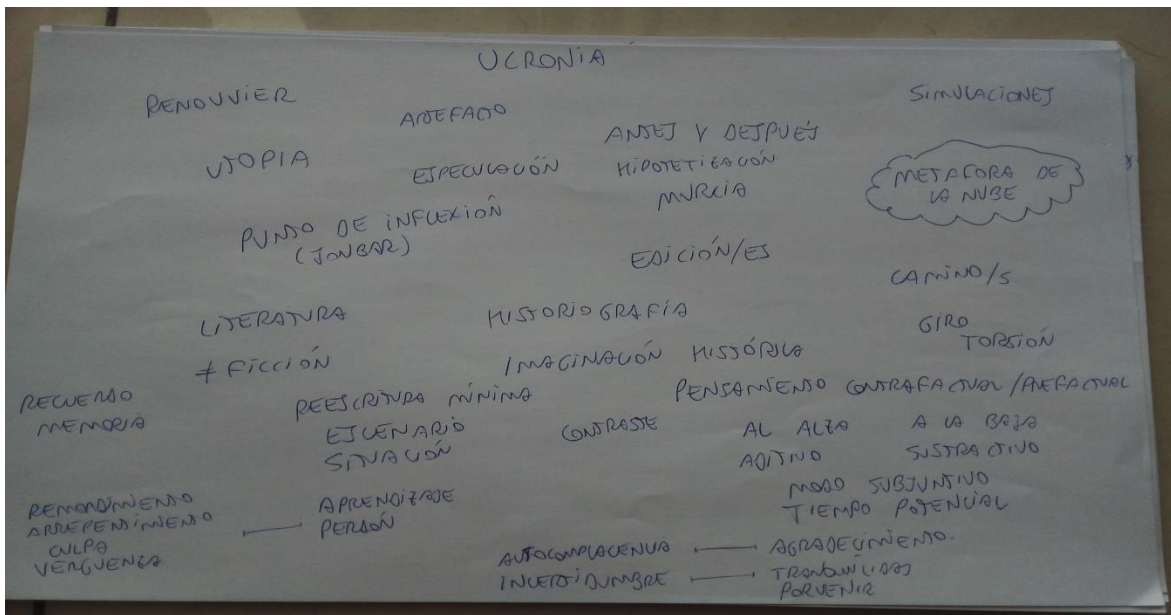 UCRONÍA
RENOUVIER
ARTEFACTO
SIMULACIONES
UTOPIA
ESPECULACIÓN
ANTES Y DESPUÉS
HIPOTETIZACIÓN
MURCIA
METAFORA DE
LA NUBE
PUNTO DE INFLEXIÓN
(JONBAR)
EDICIÓN/ES
CAMINO/S
LITERATURA
HISTORIOGRAFÍA
GIRO
TORSIÓN
≠ FICCIÓN
IMAGINACIÓN HISTÓRICA
RECUERDO
MEMORIA
REESCRITURA MÍNIMA
ESCENARIO
SITUACIÓN
CONTRASTE
PENSAMIENTO CONTRAFACTUAL/PREFACTUAL
AL ALZA
ADITIVO
A LA BAJA
SUSTRACTIVO
MODO SUBJUNTIVO
TIEMPO POTENCIAL
REMORDIMIENTO
ARREPENTIMIENTO
CULPA
VERGUENZA
APRENDIZAJE
PERDÓN
AUTOCOMPLACENCIA — AGRADECIMIENTO.
INCERTIDUMBRE — TRANQUILIDAD
PORVENIR